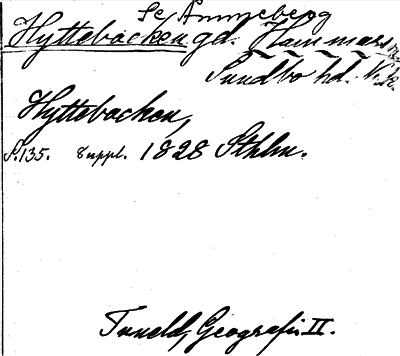 Se Ammeberg
Hyttebackengd. Hammars
Sundbo hd. Nke.
Hyttebacken,
S.135. Suppl. 1828 Sthlm.
Tuneld, Geografi II.